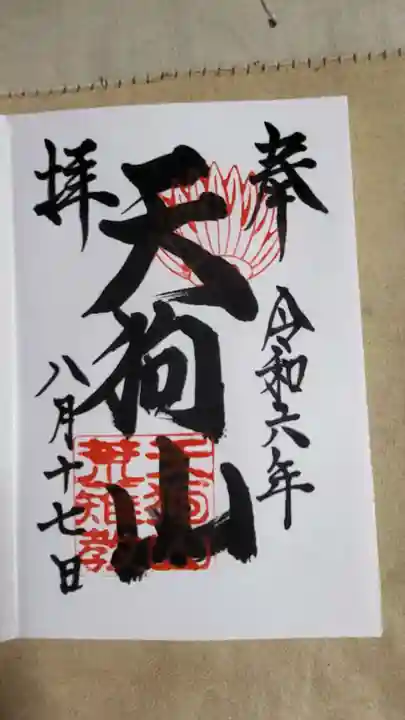 奉拝
令和六年
天狗山
八月十七日